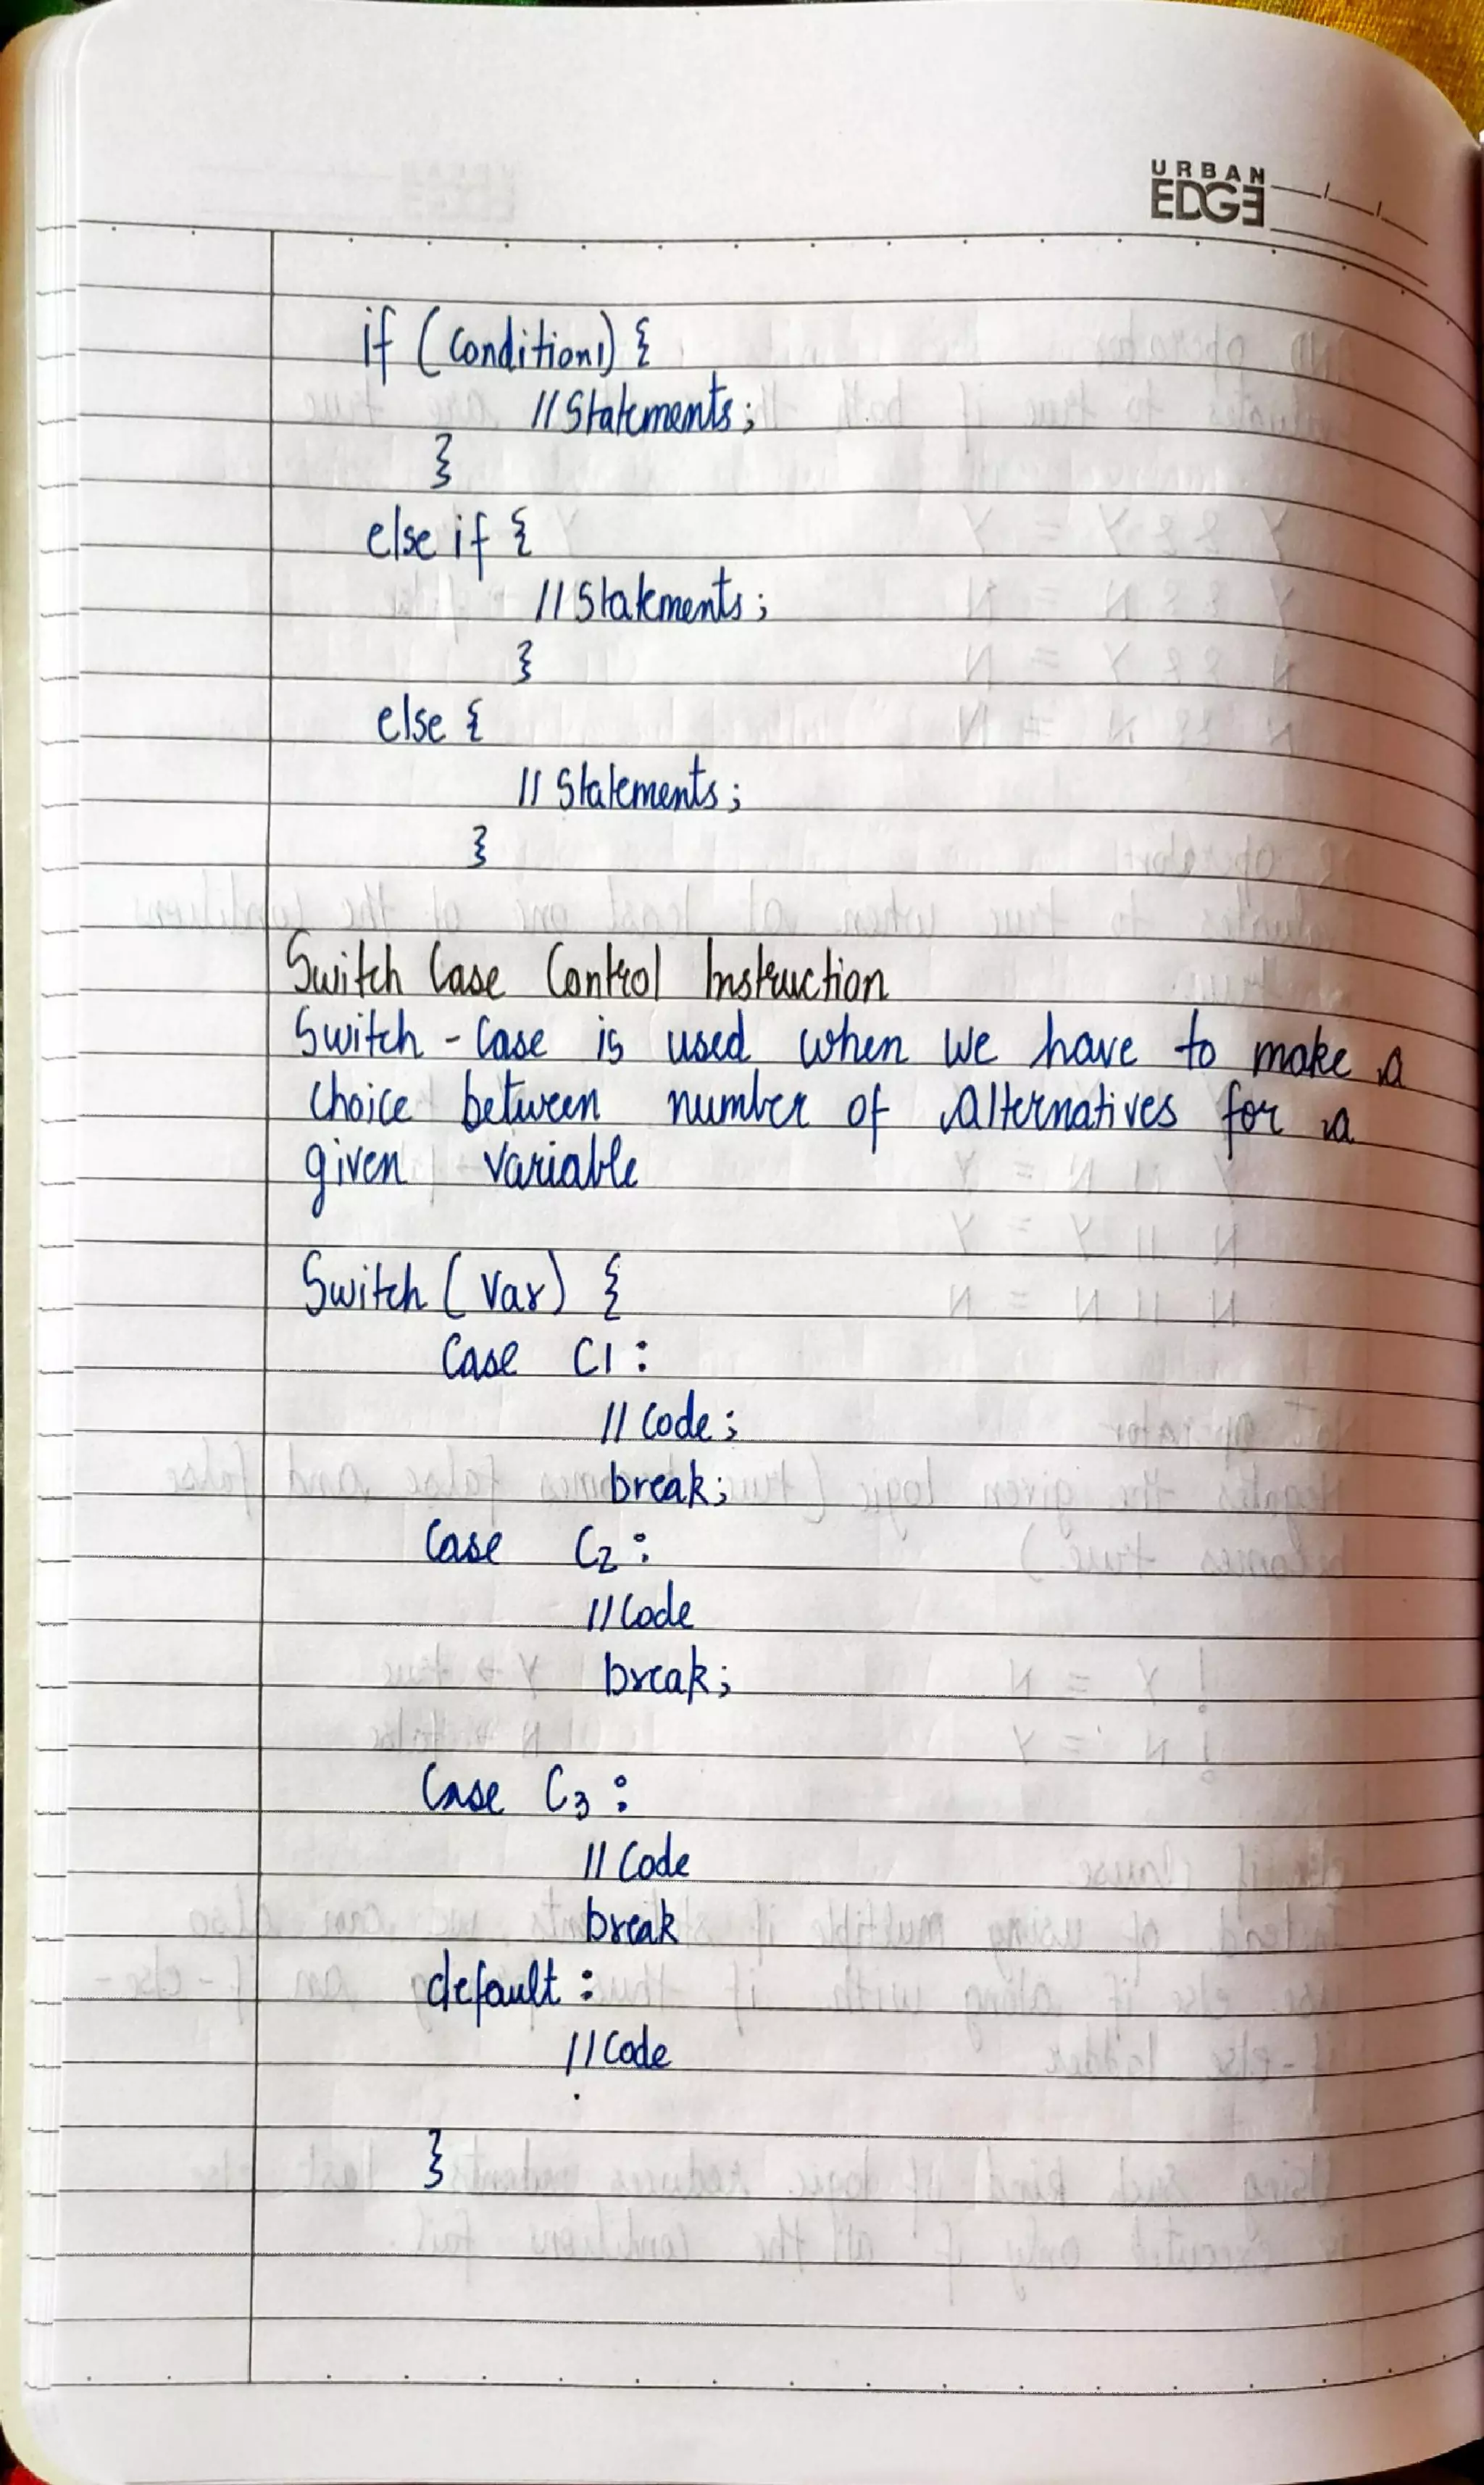 URBAN
EDGE
if (Condition1) {
//Statements;
}
else if {
//Statements;
}
else {
//Statements;
}
Switch Case Control Instruction
Switch - Case is used when we have to make a
choice between number of alternatives for a
given variable
Switch ( Var) {
Case C1 :
// Code;
break;
Case C2 :
//Code
break;
Case C3 :
//Code
break
default :
//Code
}